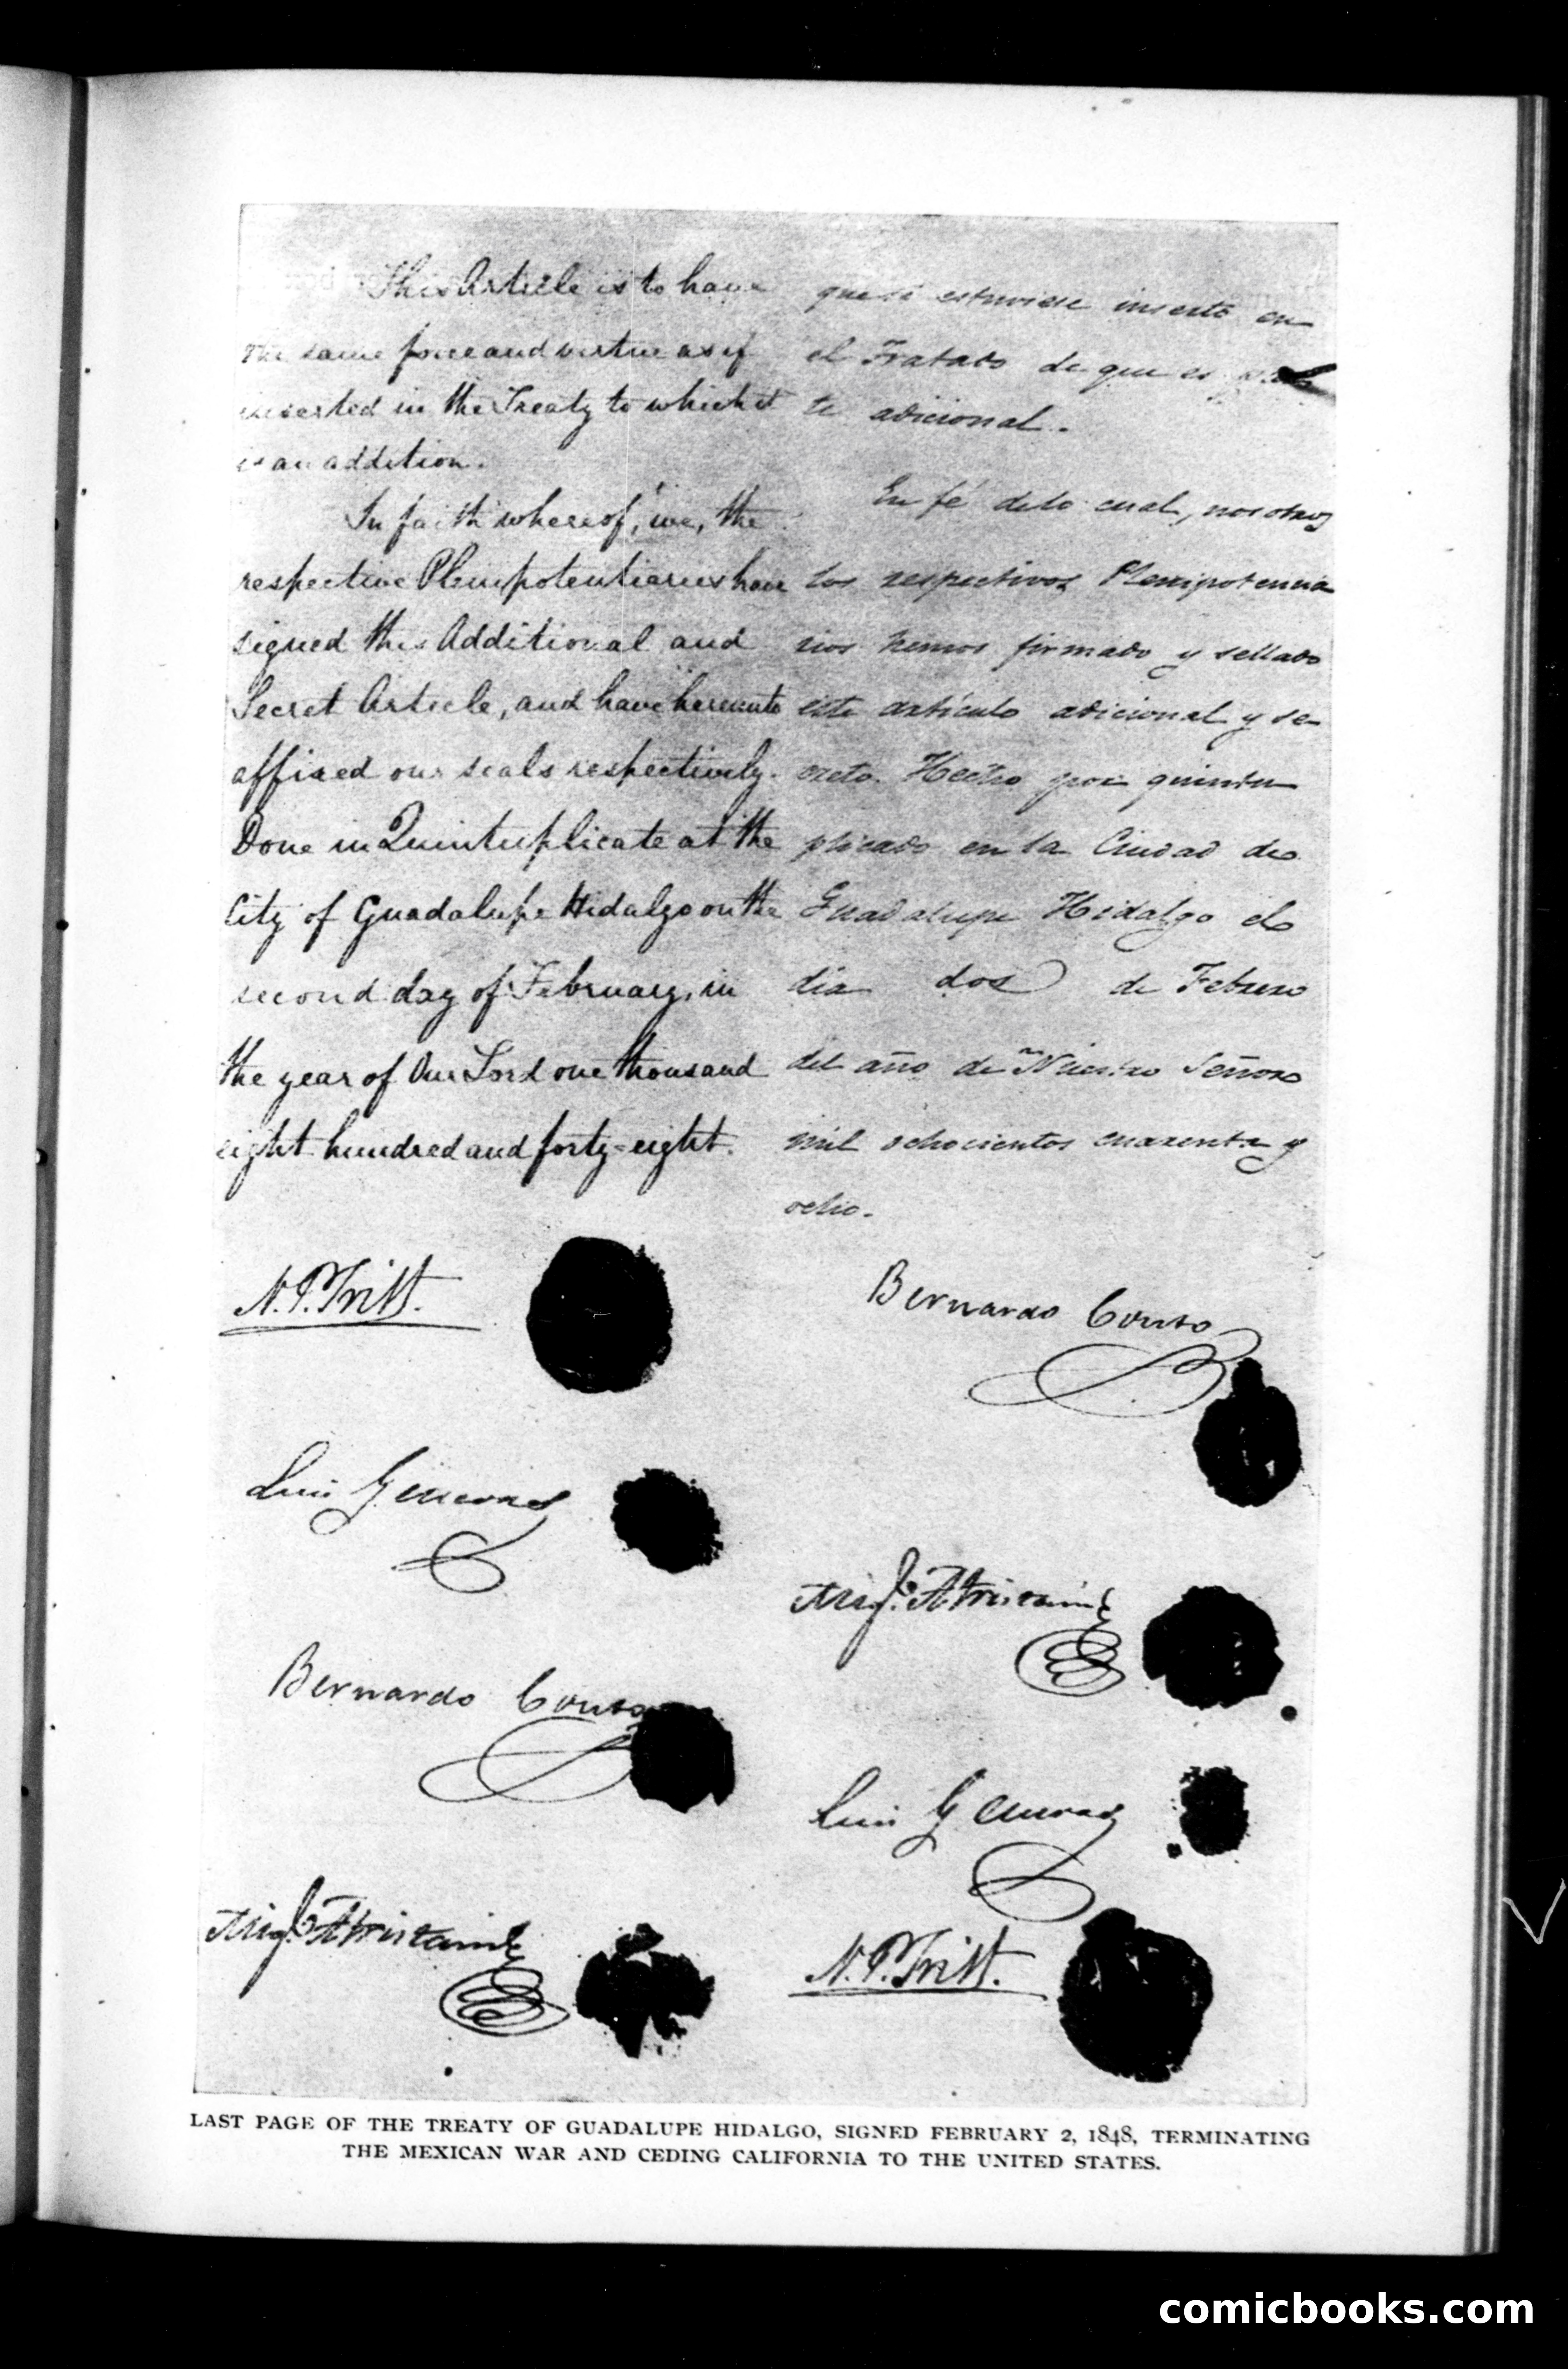 This Article is to have
the same force and virtue as if
inserted in the Treaty to which it
is an addition.
In faith whereof, we, the
respective Plenipotentiaries have
signed this Additional and
Secret Article, and have hereunto
affixed our seals respectively.
Done in Quintuplicate at the
City of Guadalupe Hidalgo on the
second day of February, in
the year of Our Lord one thousand
eight hundred and forty-eight.
que si estuviese inserto en
el Tratado de que es
te adicional.
En fé de lo cual, nosotros
los respectivos Plenipotencia
rios hemos firmado y sellado
este artículo adicional y se
creto. Hecho por quintu
plicado en la Ciudad de
Guadalupe Hidalgo el
dia dos de Febrero
del año de Nuestro Señor
mil ochocientos cuarenta y
ocho.
N. P. Trist.
Luis G. Cuevas
Bernardo Couto
Migl. Atristain
Bernardo Couto
Migl. Atristain
Luis G. Cuevas
N. P. Trist.
LAST PAGE OF THE TREATY OF GUADALUPE HIDALGO, SIGNED FEBRUARY 2, 1848, TERMINATING
THE MEXICAN WAR AND CEDING CALIFORNIA TO THE UNITED STATES.
comicbooks.com